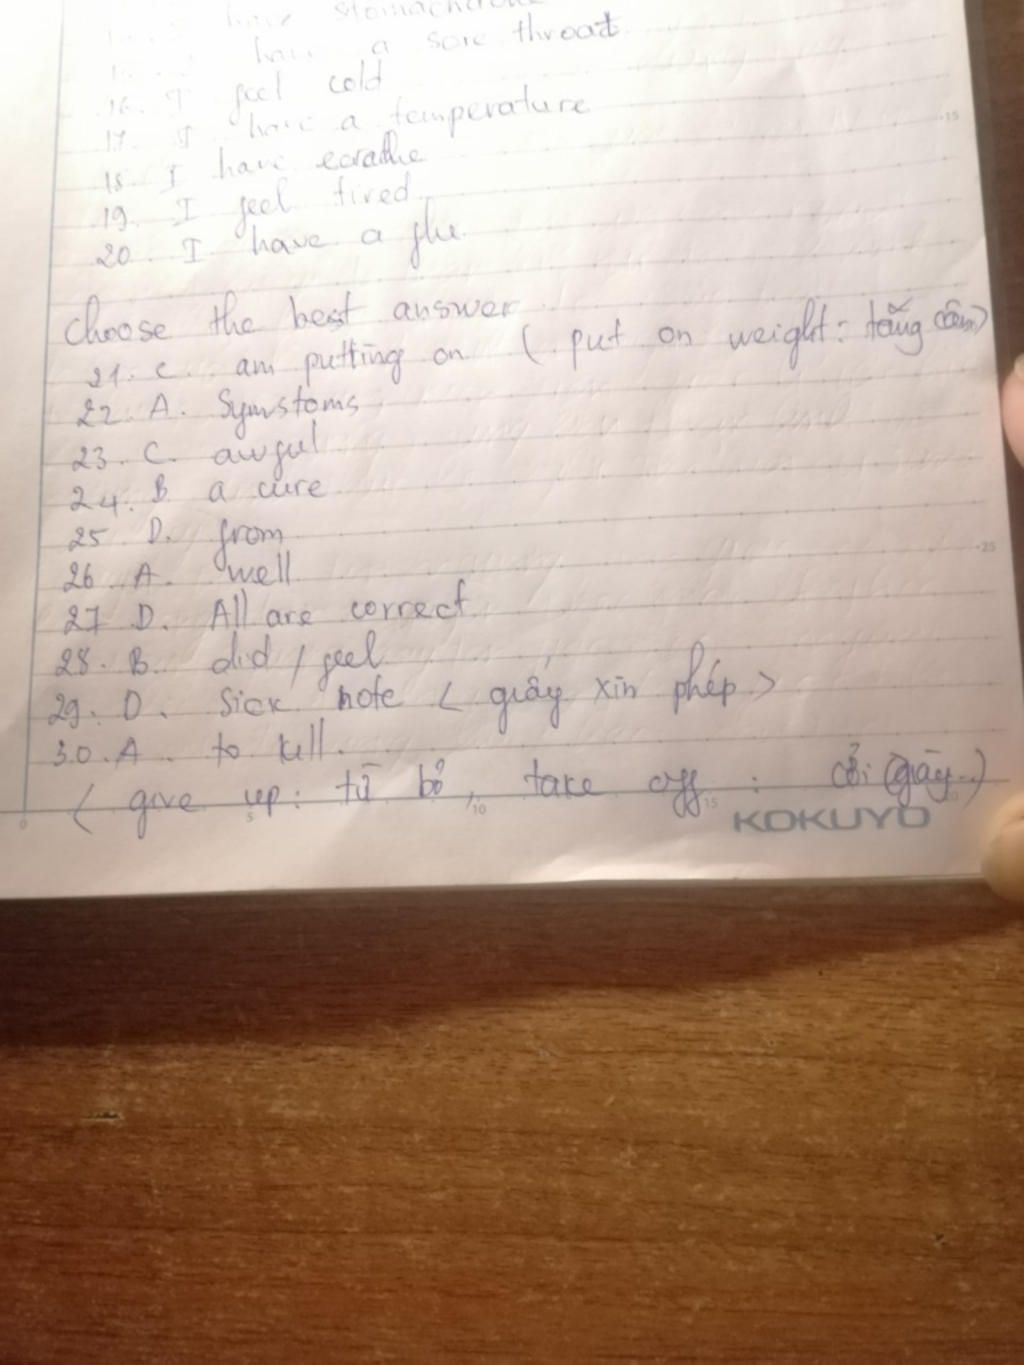 have stomachache
have a sore throat
16. I feel cold
17. I have a temperature
18. I have earathe
19. I feel tired.
20. I have a flu.
Choose the best answer
21. C. am putting on ( put on weight: tăng cân)
22. A. Symstoms
23. C. awful
24. B. a cure
25 D. from
26. A. well
27 D. All are correct.
28. B. did / feel
29. D. Sick note < giấy xin phép >
30. A. to kill.
( give up: từ bỏ, take off : cởi (giày..)
KOKUYO